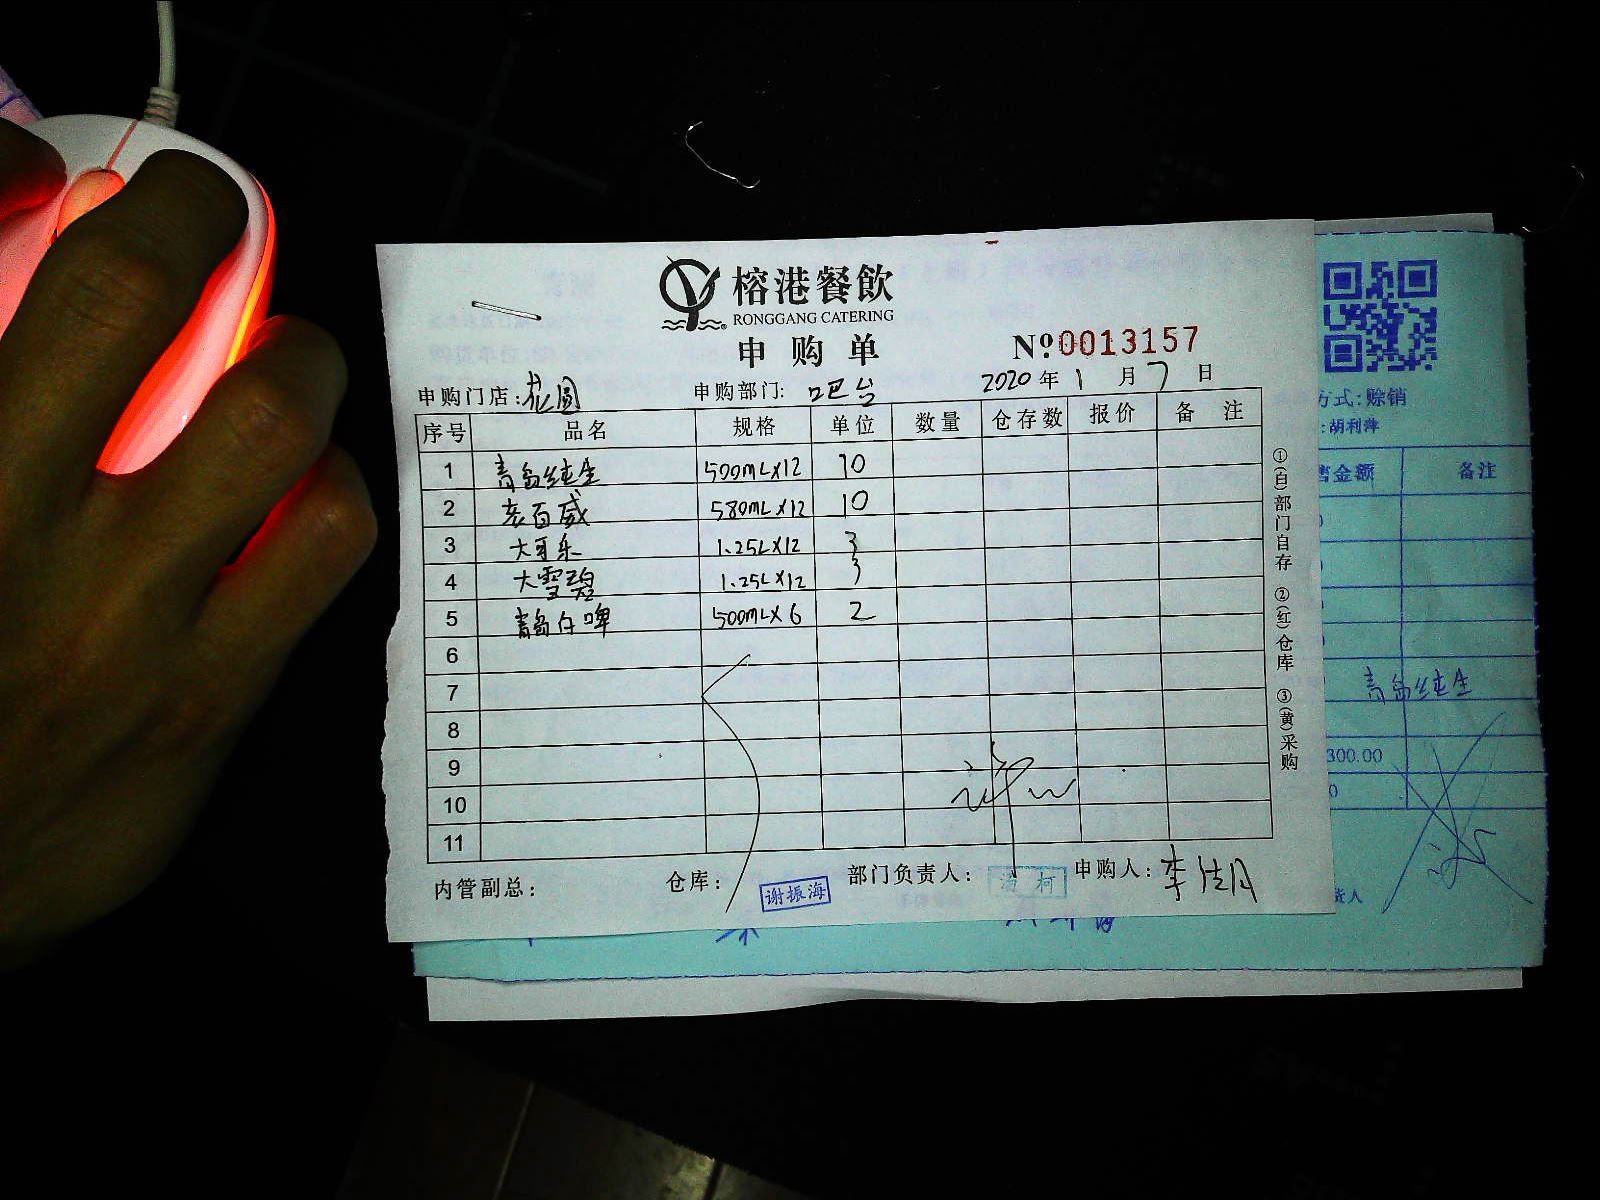 榕港餐飲
RONGGANG CATERING
申购单
№0013157
申购门店: 花圆 申购部门: 吧台 2020年1月7日
序号 品名 规格 单位 数量 仓存数 报价 备注
1 青岛纯生 500mL×12 10
2 百威 580mL×12 10
3 大可乐 1.25L×12 3
4 大雪碧 1.25L×12 3
5 青岛白啤 500mL×6 2
6
7
8
9
10
11
内管副总: 仓库: 谢振海 部门负责人: 柯 申购人: 李佳月
①(白)部门自存 ②(红)仓库 ③(黄)采购
方式:赊销
:胡利萍
售金额 备注
青岛纯生
300.00
0
责人